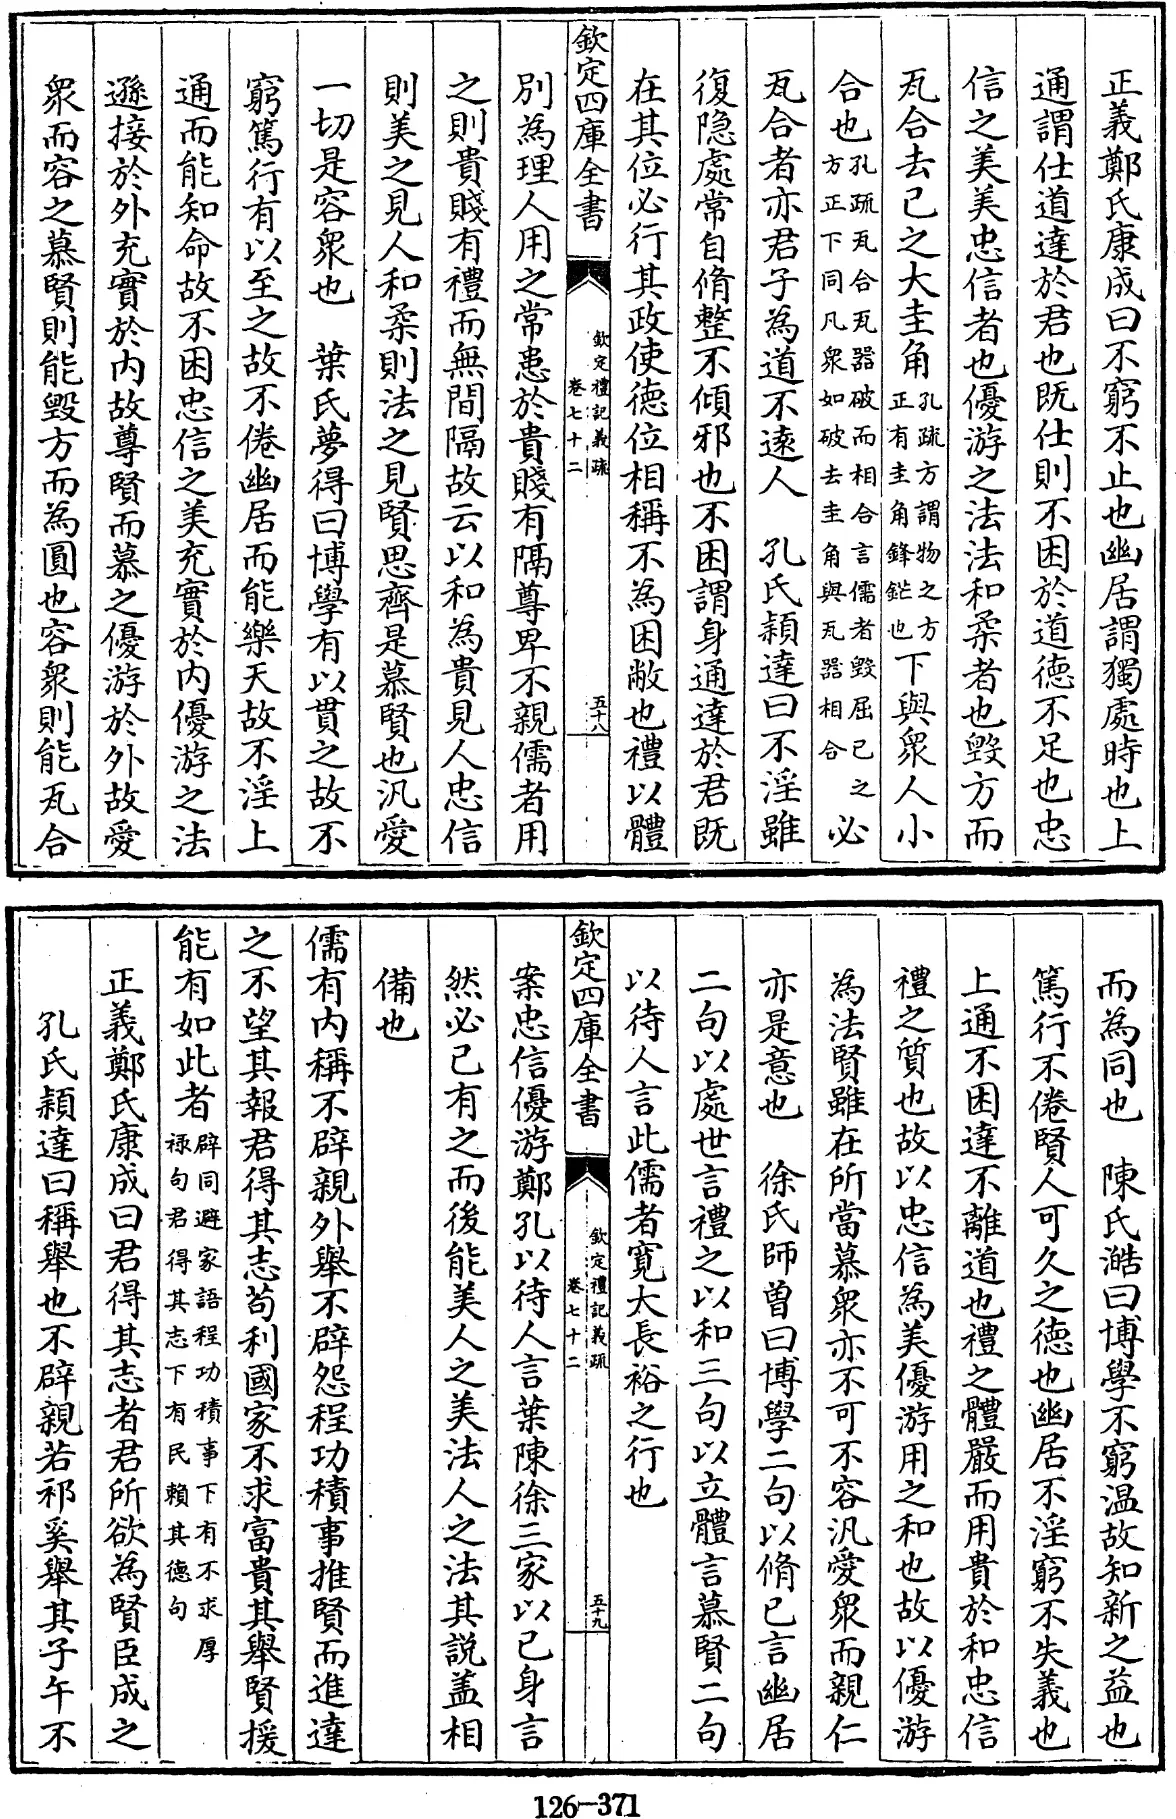 正義鄭氏康成曰不窮不止也幽居謂獨處時也上
通謂仕道達於君也既仕則不困於道德不足也忠
信之美美忠信者也優游之法法和柔者也毀方而
瓦合去已之大圭角孔疏方謂物之方正有圭角鋒鋩也下與衆人小
合也孔疏瓦合瓦器破而相合言儒者毀屈已之方正下同凡衆如破去圭角與瓦器相合必
瓦合者亦君子為道不遠人　孔氏穎達曰不淫雖
復隐處常自脩整不傾邪也不困謂身通達於君既
在其位必行其政使德位相稱不為困敝也禮以體
欽定四庫全書
欽定禮記義疏
卷七十二
五十八
別為理人用之常患於貴賤有隔尊卑不親儒者用
之則貴賤有禮而無間隔故云以和為貴見人忠信
則美之見人和柔則法之見賢思齊是慕賢也汎愛
一切是容衆也　葉氏夢得曰博學有以貫之故不
窮篤行有以至之故不倦幽居而能樂天故不淫上
通而能知命故不困忠信之美充實於内優游之法
遜接於外充實於内故尊賢而慕之優游於外故愛
衆而容之慕賢則能毀方而為圓也容衆則能瓦合
而為同也　陳氏澔曰博學不窮温故知新之益也
篤行不倦賢人可久之德也幽居不淫窮不失義也
上通不困達不離道也禮之體嚴而用貴於和忠信
禮之質也故以忠信為美優游用之和也故以優游
為法賢雖在所當慕衆亦不可不容汎愛衆而親仁
亦是意也　徐氏師曾曰博學二句以脩已言幽居
二句以處世言禮之以和三句以立體言慕賢二句
以待人言此儒者寛太長裕之行也
欽定四庫全書
欽定禮記義疏
卷七十二
五十九
案忠信優游鄭孔以待人言葉陳徐三家以已身言
然必已有之而後能美人之美法人之法其説盖相
備也
儒有内稱不辟親外舉不辟怨程功積事推賢而進達
之不望其報君得其志苟利國家不求富貴其舉賢援
能有如此者辟同避家語程功積事下有不求厚祿句君得其志下有民賴其德句
正義鄭氏康成曰君得其志者君所欲為賢臣成之
孔氏穎達曰稱舉也不辟親若祁奚舉其子午不
126-371